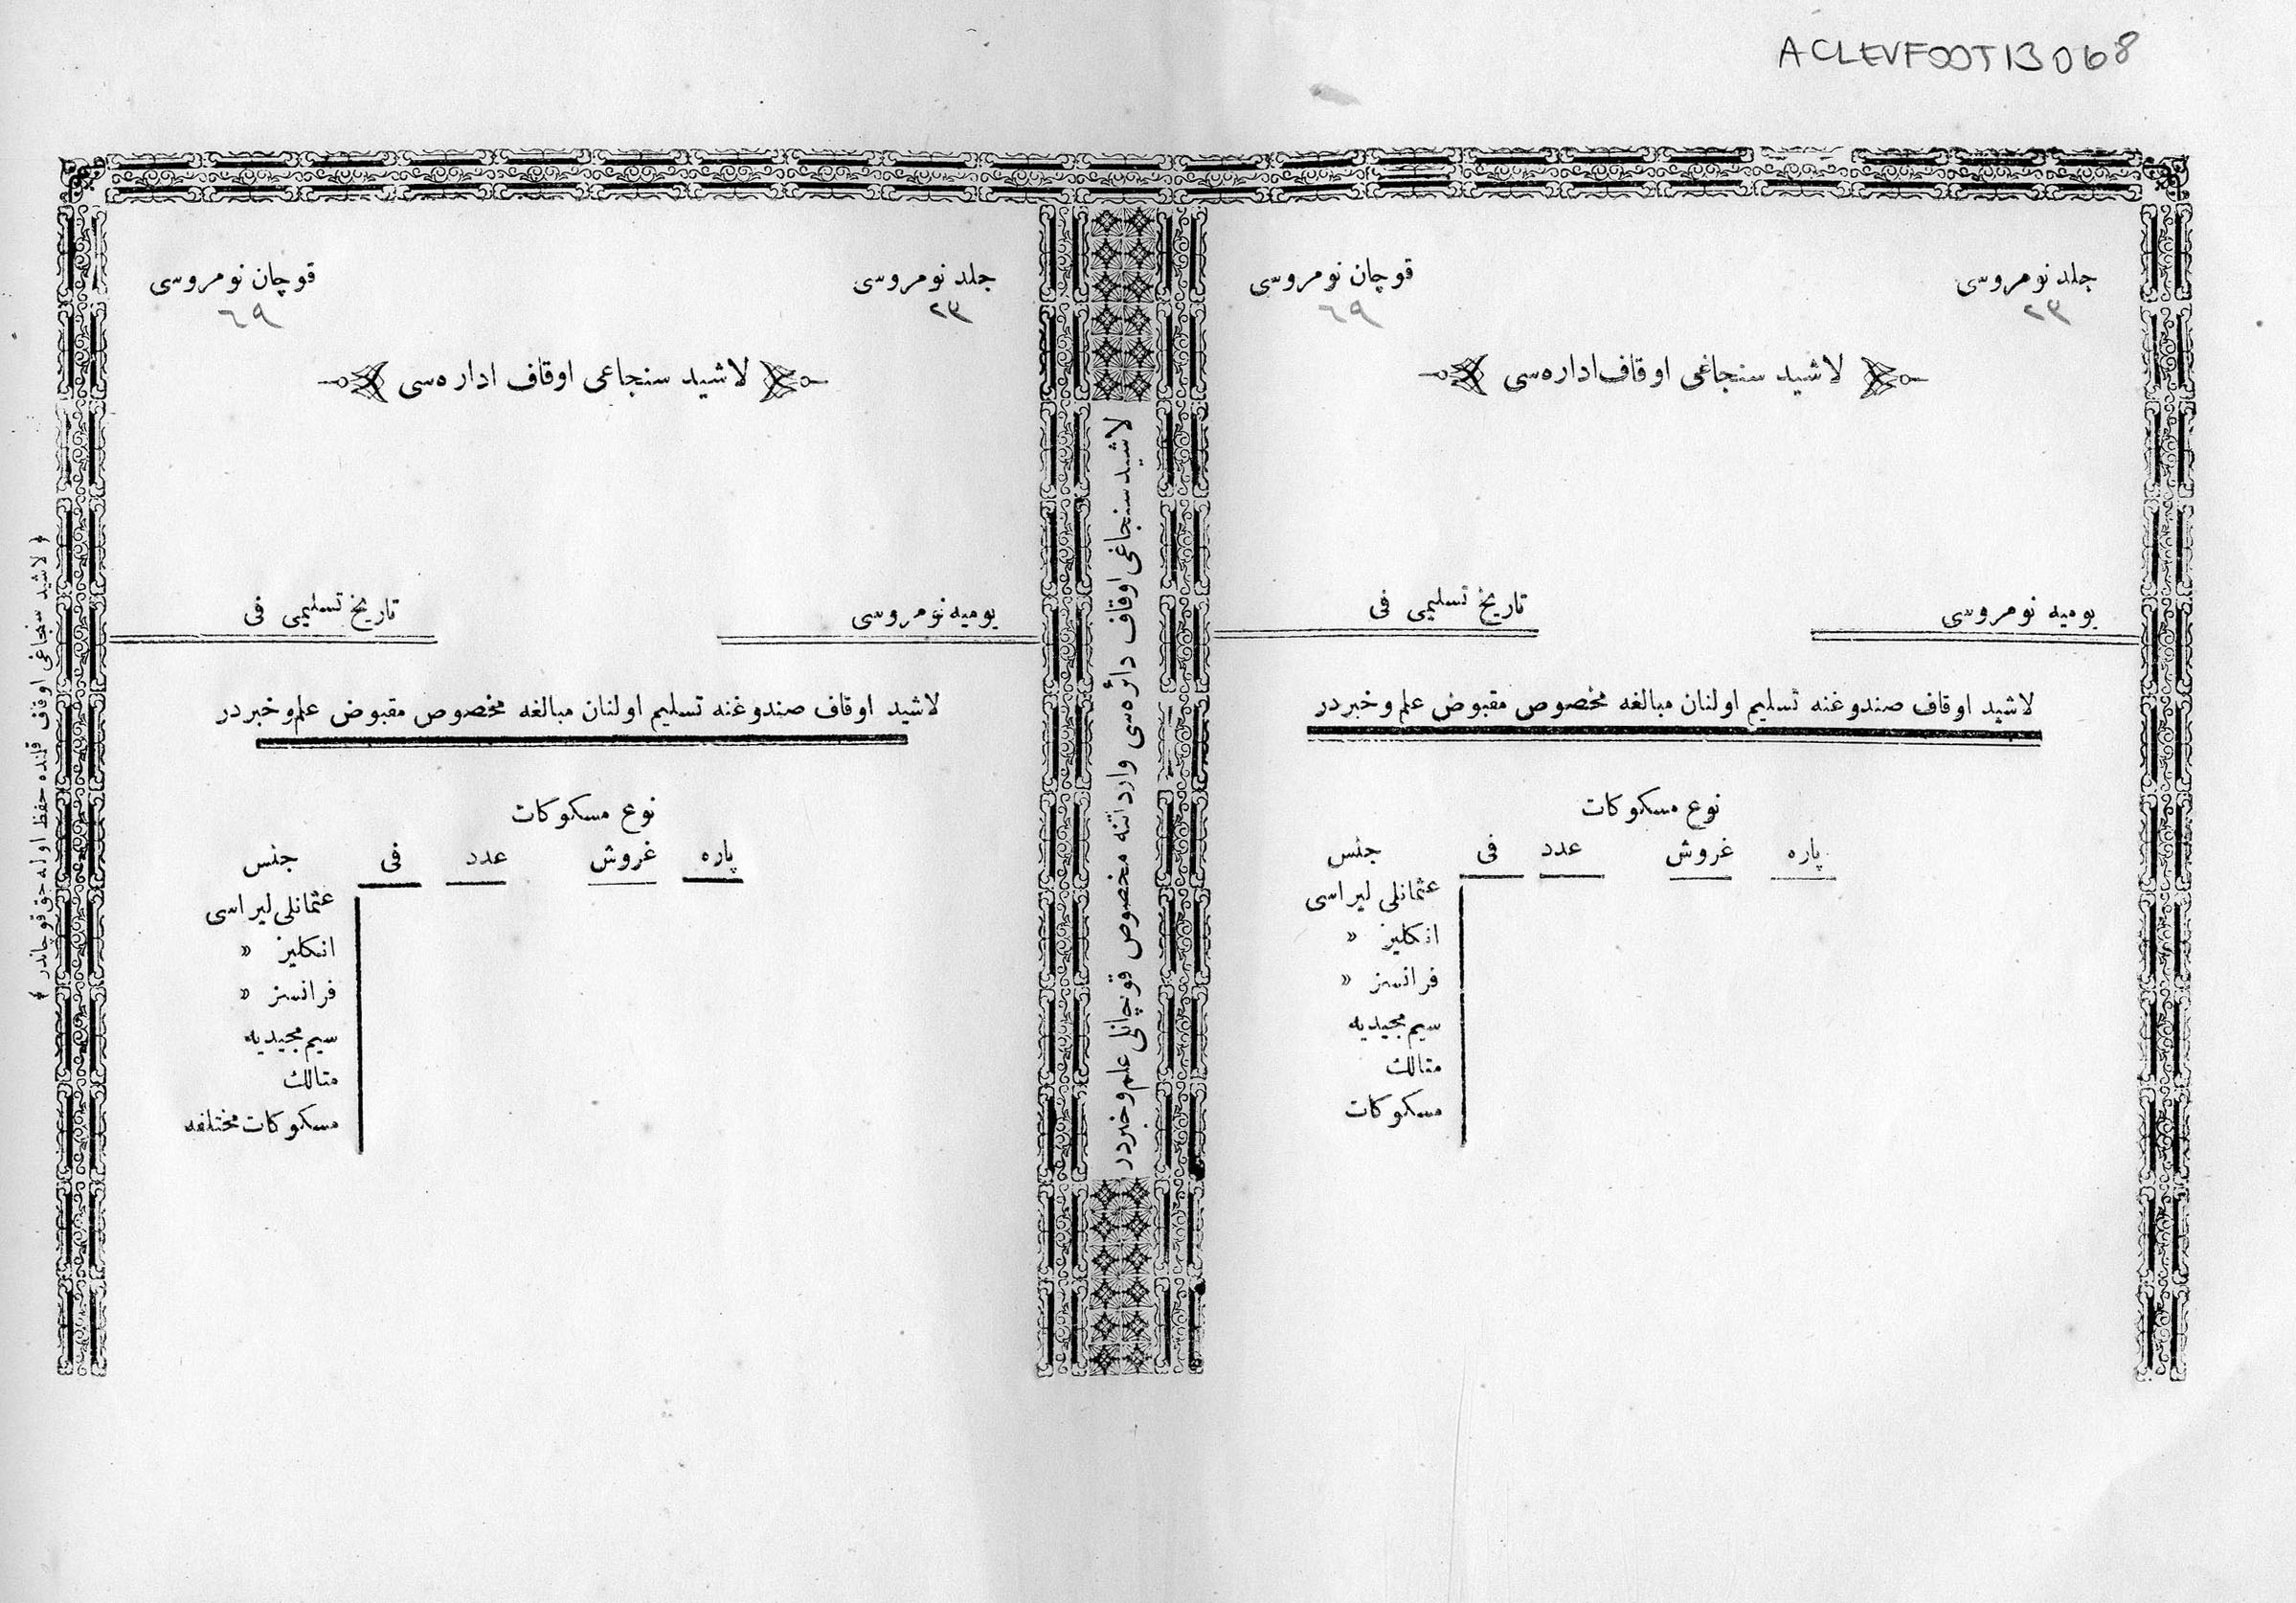 ACLEVFOOT13068
جلد نومروسی
٢٣
قوچان نومروسی
٦٩
لاشید سنجاغی اوقاف اداره‌سی
یومیه نومروسی
تاریخ تسلیمی فی
لاشید اوقاف صندوغنه تسلیم اولنان مبالغه مخصوص مقبوض علم وخبردر
نوع مسکوکات
پاره غروش عدد فی جنس
عثمانلی لیراسی
انکلیز »
فرانسز »
سیم مجیدیه
متالك
مسکوکات
لاشید سنجاغی اوقاف دائره‌سی وارداتنه مخصوص قوچانلی علم وخبردر
جلد نومروسی
٢٣
قوچان نومروسی
٦٩
لاشید سنجاغی اوقاف اداره‌سی
یومیه نومروسی
تاریخ تسلیمی فی
لاشید اوقاف صندوغنه تسلیم اولنان مبالغه مخصوص مقبوض علم وخبردر
نوع مسکوکات
پاره غروش عدد فی جنس
عثمانلی لیراسی
انکلیز »
فرانسز »
سیم مجیدیه
متالك
مسکوکات مختلفه
﴿ لاشید سنجاغی اوقاف قلنده حفظ اوله‌جق قوچاندر ﴾